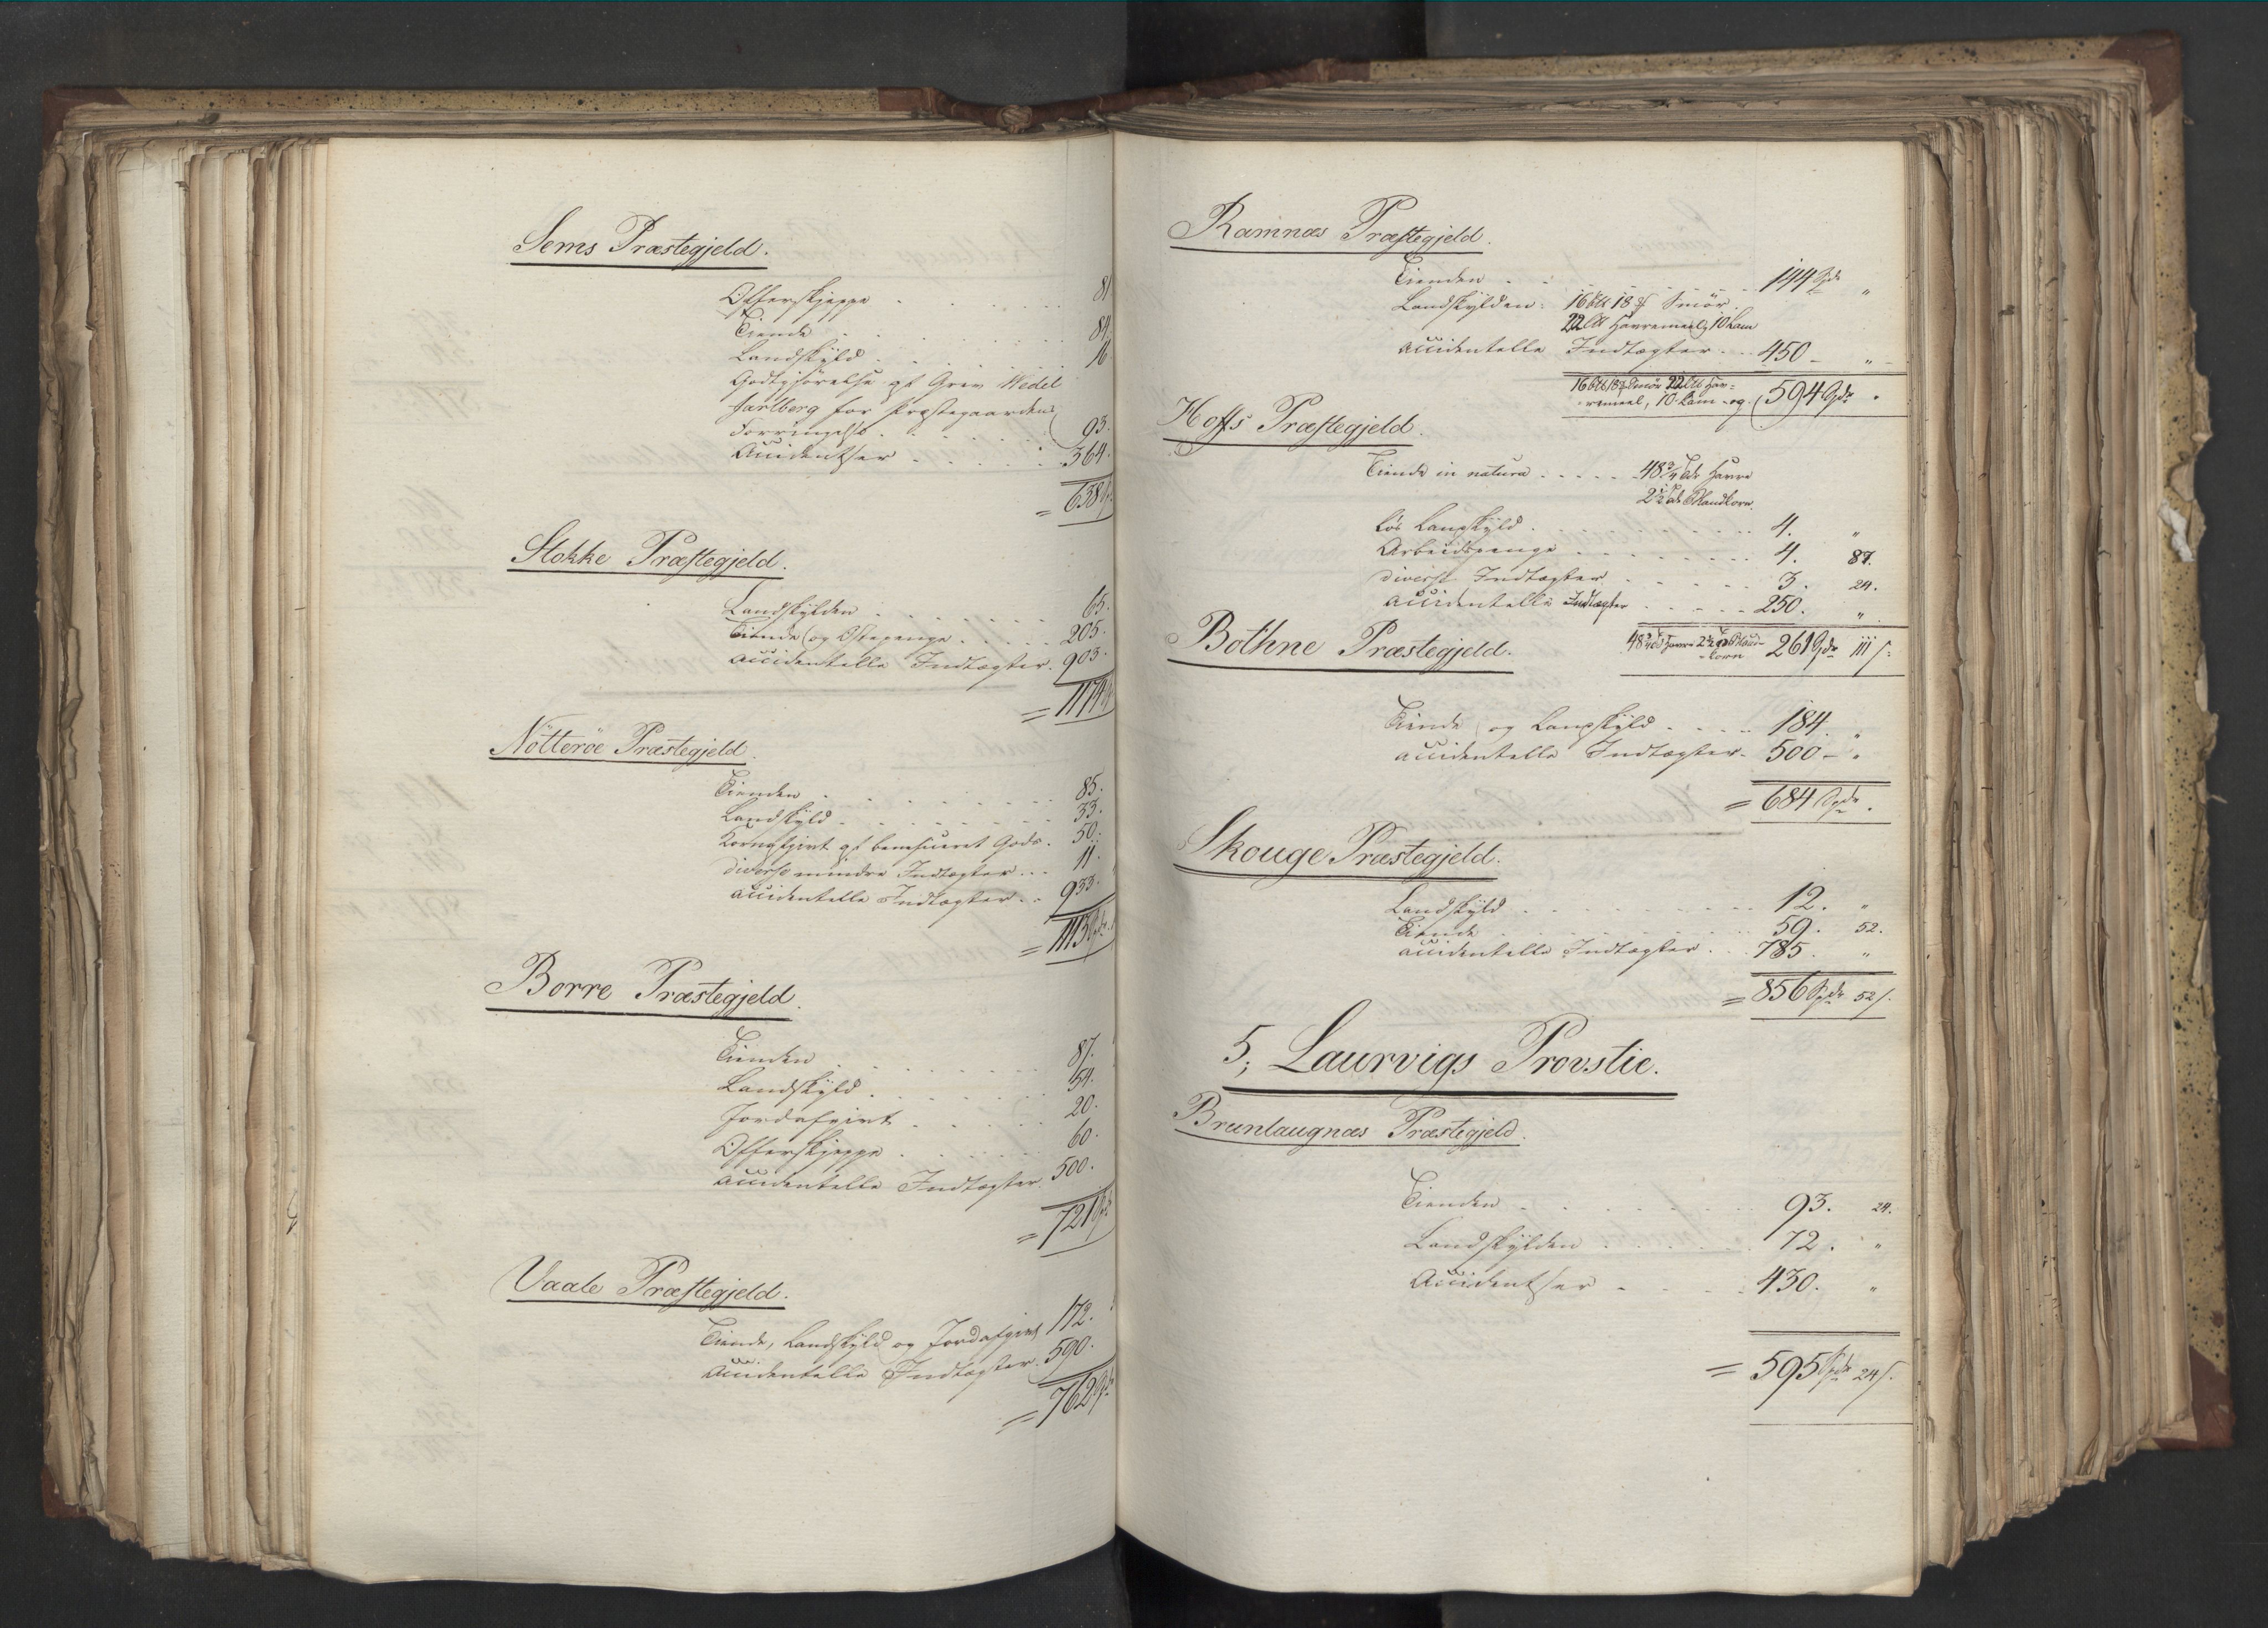 Sems Præstegjeld.
Offerskjeppe 81
Tiende 84.
Landskyld 16
Godtgjörelse af Grev Wedel
Jarlberg for Præstegaardens
Forringelse 93.
Accidentser 364.
= 638
Stokke Præstegjeld.
Landskylden 65.
Tiende og Ostepenge 205.
accidentelle Indtægter. 903.
= 1174
Nötteröe Præstegjeld.
Tienden 85.
Landskyld 33.
Kornafgivt af beneficeret Gods. 50.
diverse mindre Indtægter 11.
accidentelle Indtægter 933.
= 1113
Borre Præstegjeld.
Tienden 87.
Landskyld 54.
Jordafgivt 20.
Offerskjeppe 60.
accidentelle Indtægter 500.
= 721
Vaale Præstegjeld.
Tiende, Landskyld og Jordafgivt 172.
Accidentelle Indtægter. 590.
= 762
Ramnæs Præstegjeld.
Tienden 144 Spd "
Landskylden: 16 18 Smör
22 Havremeel, 10 Lam
accidentelle Indtægter 450 - "
16 18 Smör 22 Hav-
remeel, 10 Lam og 594 Spd "
Hoffs Præstegjeld.
Tiende in natura 48 3/4 Tdr Havre
2 1/2 Tdr Blandkorn.
lös Landskyld 4. "
Arbeidspenge 4. 87.
diverse Indtægter 3. 24.
accidentelle Indtægter 250. "
48 3/4 Td Havre 2 1/2 Td Bland-
korn 261 Spd 111 s.
Bothne Præstegjeld.
Tiende og Landskyld 184. "
accidentelle Indtægter 500 - "
= 684 Spd "
Skouge Præstegjeld.
Landskyld 12. "
Tiende 59. 52.
accidentelle Indtægter 785. "
= 856 Spd 52 s.
5, Laurvigs Provstie.
Brunlaugnæs Præstegjeld.
Tienden 93. 24.
Landskylden 72. "
Accidentser 430. "
= 595 Spd 24 s.